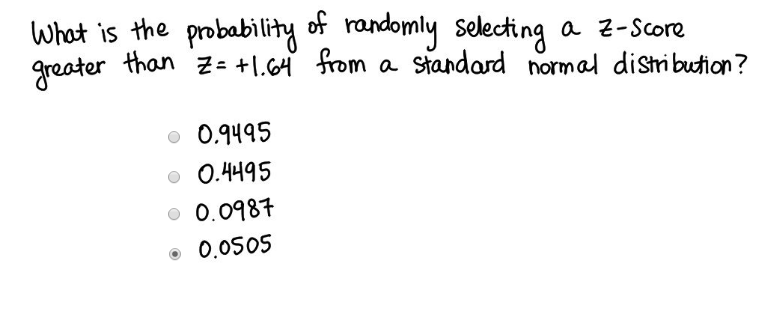 What is the probability of randomly selecting a z-score
greater than z= +1.64 from a standard normal distribution?
0.9495
0.4495
0.0987
0.0505